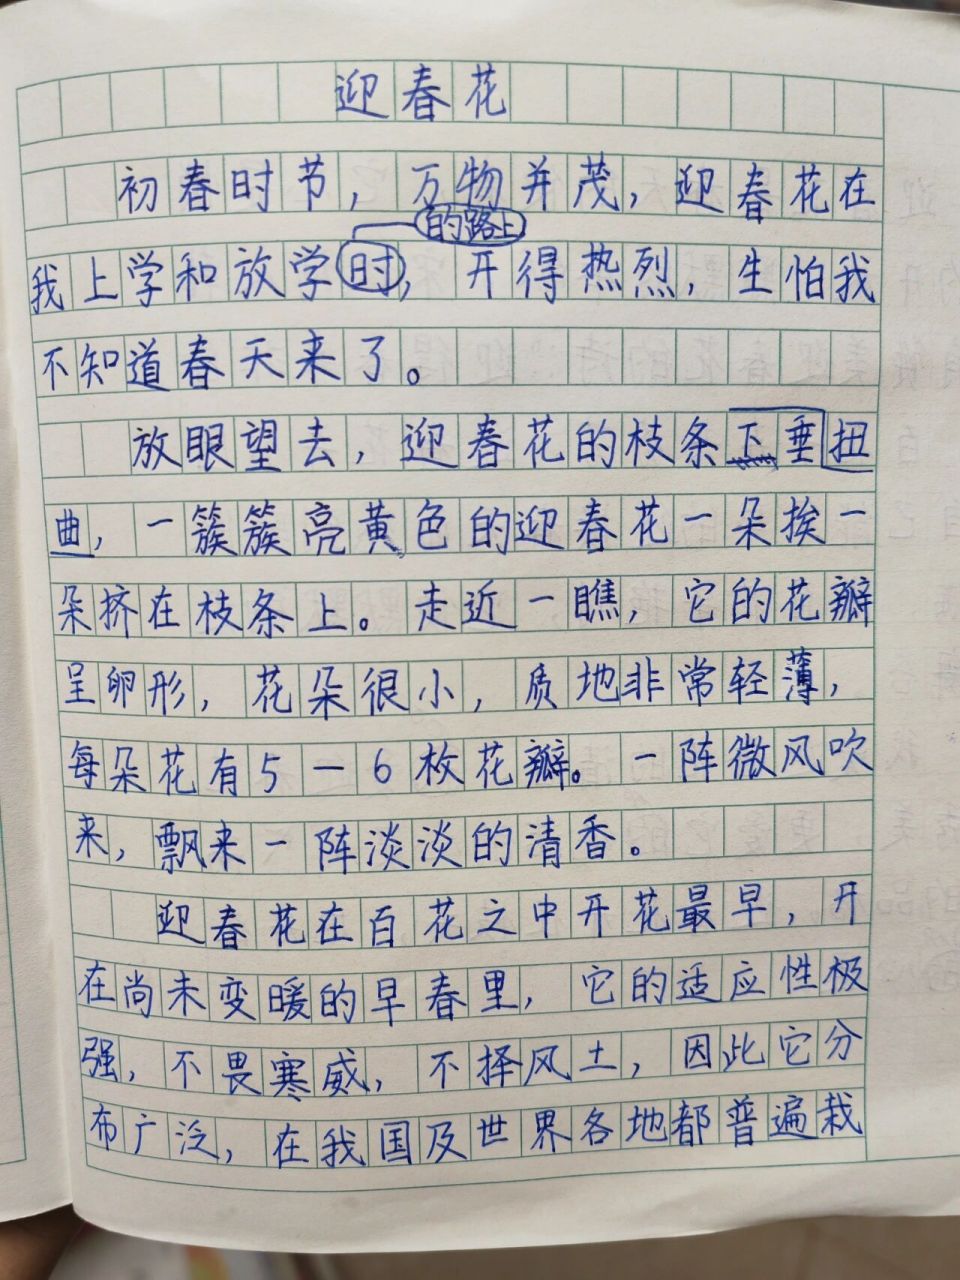 迎春花
初春时节，万物并茂，迎春花在
的路上
我上学和放学时，开得热烈，生怕我
不知道春天来了。
放眼望去，迎春花的枝条下垂扭
曲，一簇簇亮黄色的迎春花一朵挨一
朵挤在枝条上。走近一瞧，它的花瓣
呈卵形，花朵很小，质地非常轻薄，
每朵花有5—6枚花瓣。一阵微风吹
来，飘来一阵淡淡的清香。
迎春花在百花之中开花最早，开
在尚未变暖的早春里，它的适应性极
强，不畏寒威，不择风土，因此它分
布广泛，在我国及世界各地都普遍栽